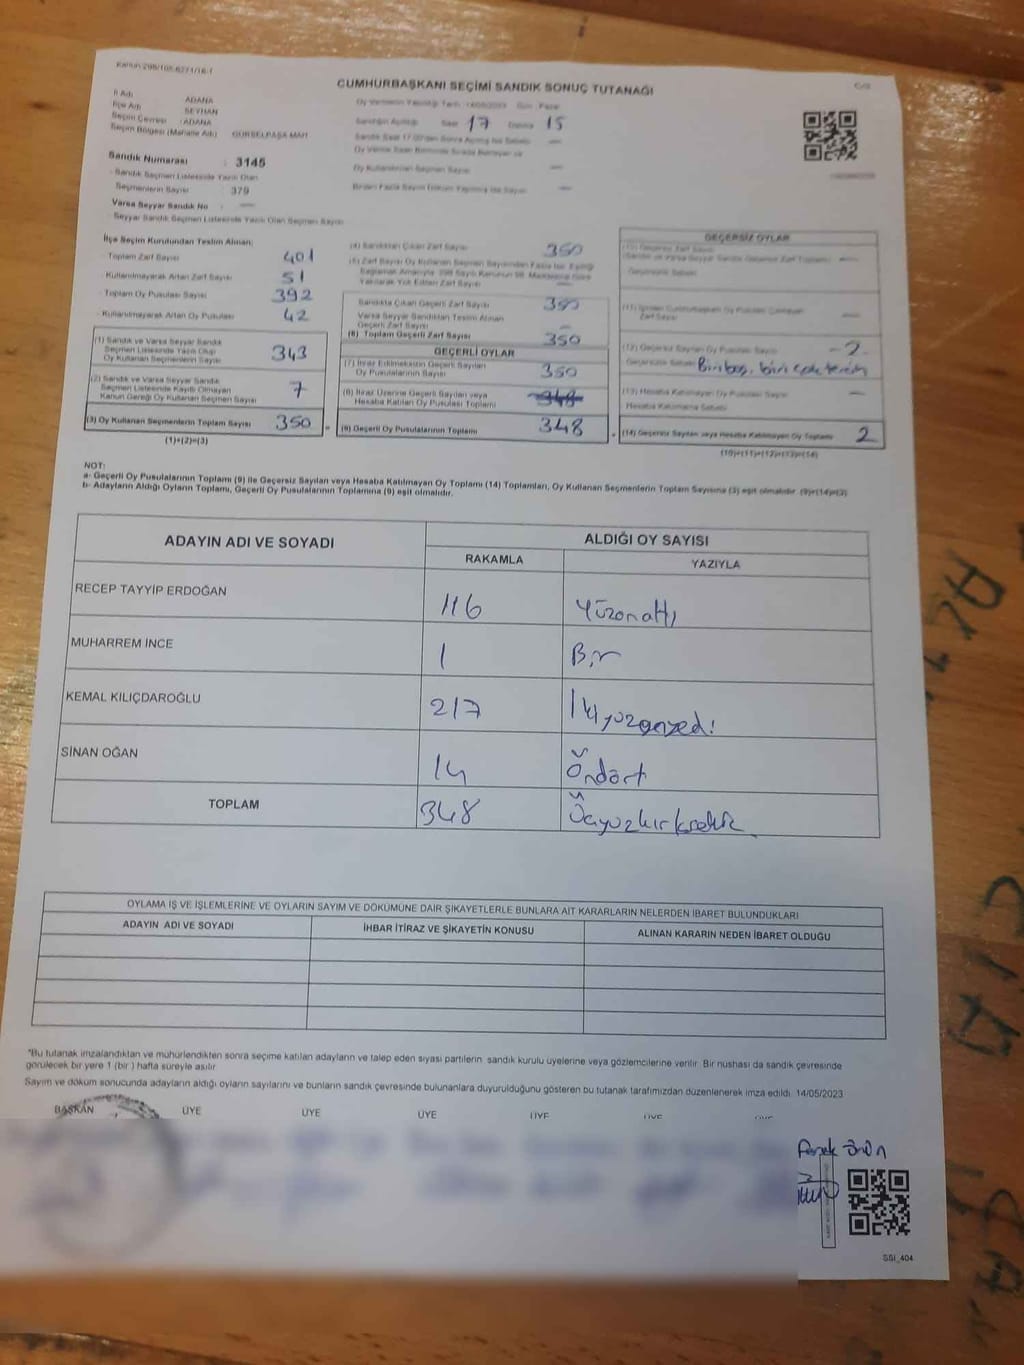 Kanun:298/105-6271/16-1
CUMHURBAŞKANI SEÇİMİ SANDIK SONUÇ TUTANAĞI
İl Adı ADANA
İlçe Adı SEYHAN
Seçim Çevresi : ADANA
Seçim Bölgesi (Mahalle Adı) GÜRSELPAŞA MAH
Sandık Numarası : 3145
Sandık Seçmen Listesinde Yazılı Olan
Seçmenlerin Sayısı 379
Varsa Seyyar Sandık No —
Seyyar Sandık Seçmen Listesinde Yazılı Olan Seçmen Sayısı
Saat 17 Dakika 15
Oy Kullanan Seçmen Sayısı —
İlçe Seçim Kurulundan Teslim Alınan;
Toplam Zarf Sayısı 401
Kullanılmayarak Artan Zarf Sayısı 51
Toplam Oy Pusulası Sayısı 392
Kullanılmayarak Artan Oy Pusulası 42
(1) Sandık ve Varsa Seyyar Sandık
Seçmen Listesinde Yazılı Olup
Oy Kullanan Seçmenlerin Sayısı 343
(2) Sandık ve Varsa Seyyar Sandık
Seçmen Listesinde Kayıtlı Olmayan
Kanun Gereği Oy Kullanan Seçmen Sayısı 7
(3) Oy Kullanan Seçmenlerin Toplam Sayısı 350
(1)+(2)=(3)
(4) Sandıktan Çıkan Zarf Sayısı 350
Sandıkta Çıkan Geçerli Zarf Sayısı 350
Varsa Seyyar Sandıktan Teslim Alınan
Geçerli Zarf Sayısı —
(6) Toplam Geçerli Zarf Sayısı 350
GEÇERLİ OYLAR
(7) İtiraz Edilmeksizin Geçerli Sayılan
Oy Pusulalarının Sayısı 350
(8) İtiraz Üzerine Geçerli Sayılan veya
Hesaba Katılan Oy Pusulası Toplamı 348
(9) Geçerli Oy Pusulalarının Toplamı 348
GEÇERSİZ OYLAR
(12) Geçersiz Sayılan Oy Pusulası Sayısı -2-
Biri boş, biri çok tercih
(13) Hesaba Katılmayan Oy Pusulası Sayısı —
Hesaba Katılmama Sebebi
(14) Geçersiz Sayılan veya Hesaba Katılmayan Oy Toplamı 2
(10)+(11)+(12)+(13)=(14)
NOT:
a- Geçerli Oy Pusulalarının Toplamı (9) ile Geçersiz Sayılan veya Hesaba Katılmayan Oy Toplamı (14) Toplamları, Oy Kullanan Seçmenlerin Toplam Sayısına (3) eşit olmalıdır. (9)+(14)=(3)
b- Adayların Aldığı Oyların Toplamı, Geçerli Oy Pusulalarının Toplamına (9) eşit olmalıdır.
ADAYIN ADI VE SOYADI ALDIĞI OY SAYISI
RAKAMLA YAZIYLA
RECEP TAYYİP ERDOĞAN 116 Yüzonaltı
MUHARREM İNCE 1 Bir
KEMAL KILIÇDAROĞLU 217 İkiyüzonyedi
SİNAN OĞAN 14 Ondört
TOPLAM 348 Üçyüzkırksekiz
OYLAMA İŞ VE İŞLEMLERİNE VE OYLARIN SAYIM VE DÖKÜMÜNE DAİR ŞİKAYETLERLE BUNLARA AİT KARARLARIN NELERDEN İBARET BULUNDUKLARI
ADAYIN ADI VE SOYADI İHBAR İTİRAZ VE ŞİKAYETİN KONUSU ALINAN KARARIN NEDEN İBARET OLDUĞU
*Bu tutanak imzalandıktan ve mühürlendikten sonra seçime katılan adayların ve talep eden siyasi partilerin sandık kurulu üyelerine veya gözlemcilerine verilir. Bir nüshası da sandık çevresinde
görülecek bir yere 1 (bir) hafta süreyle asılır.
Sayım ve döküm sonucunda adayların aldığı oyların sayılarını ve bunların sandık çevresinde bulunanlara duyurulduğunu gösteren bu tutanak tarafımızdan düzenlenerek imza edildi. 14/05/2023
BAŞKAN ÜYE ÜYE ÜYE ÜYE ÜYE
SSI_404